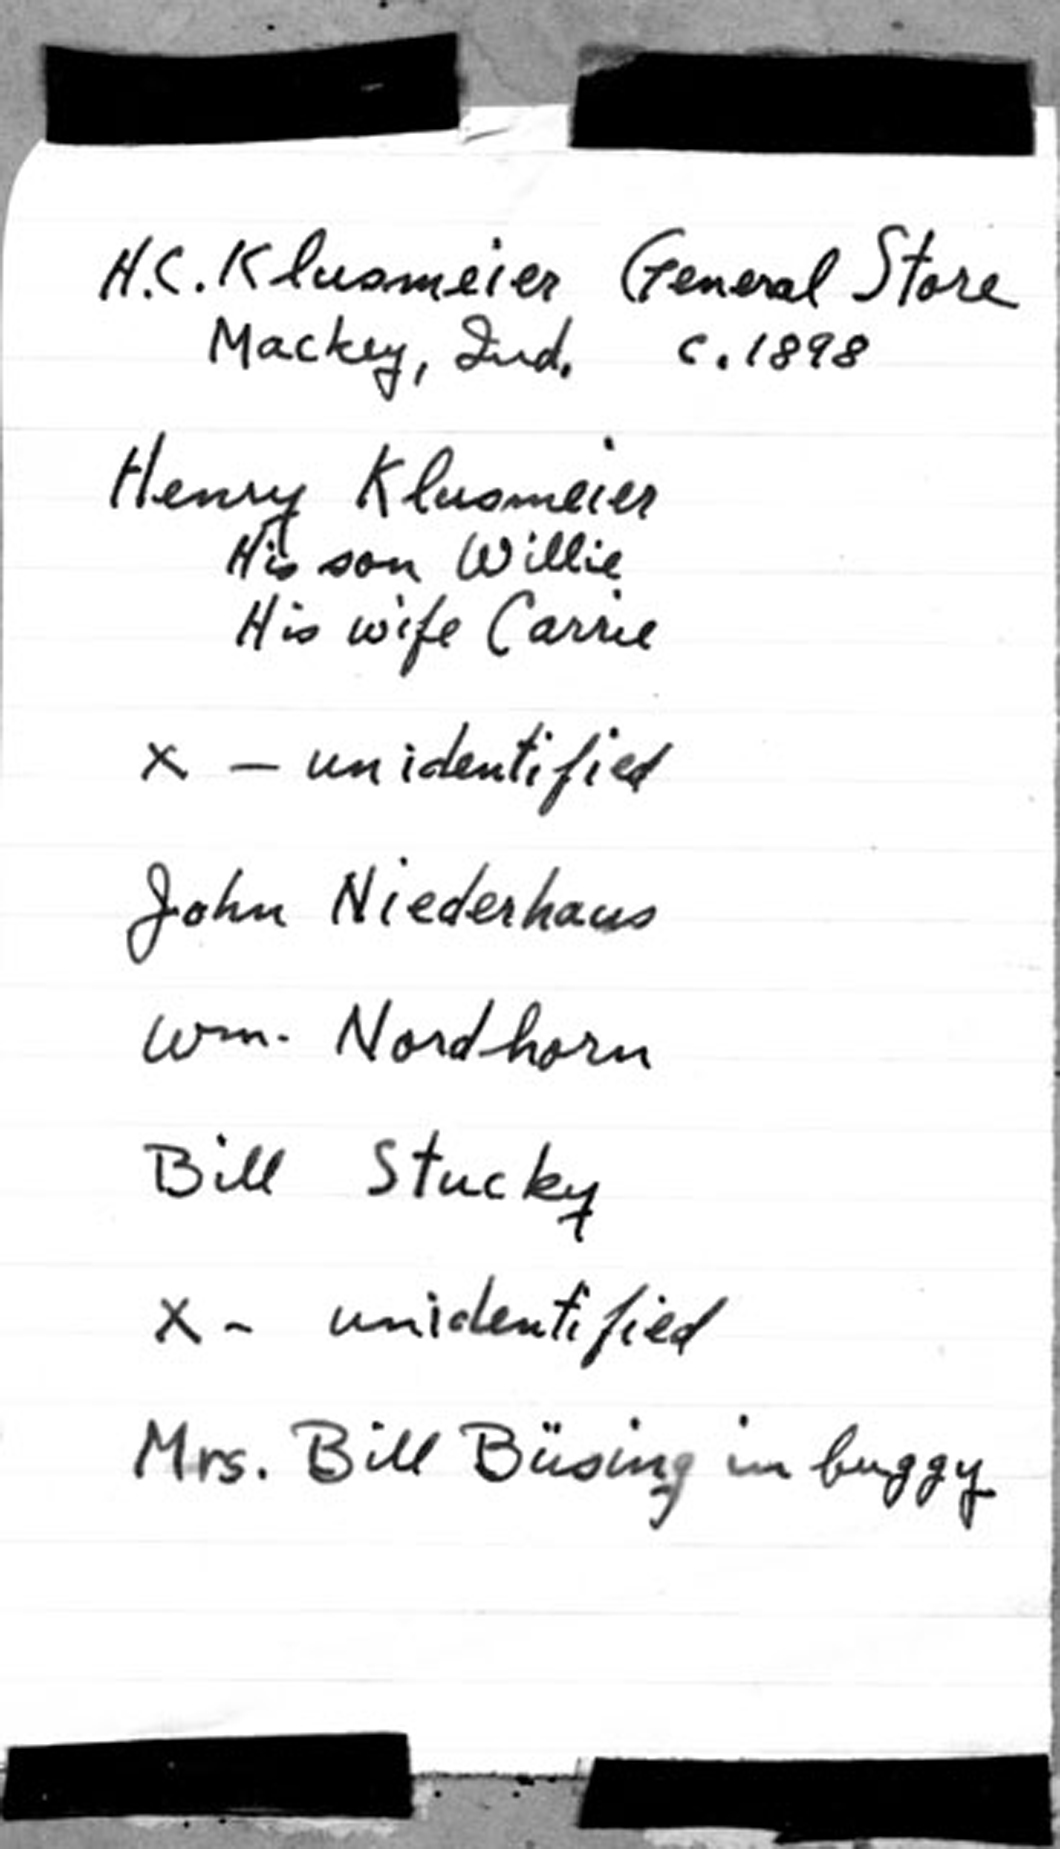 H.C. Klusmeier General Store
Mackey, Ind. c. 1898
Henry Klusmeier
His son Willie
His wife Carrie
x — unidentified
John Niederhaus
Wm. Nordhorn
Bill Stucky
X - unidentified
Mrs. Bill Büsing in buggy